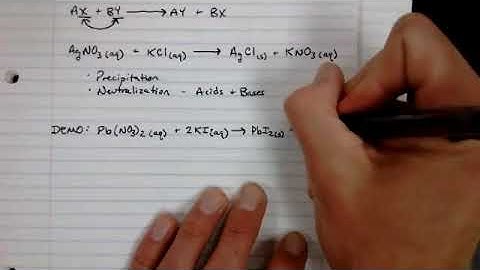 AX + BY ⟶ AY + BX
AgNO₃(aq) + KCl(aq) ⟶ AgCl(s) + KNO₃(aq)
· Precipitation
· Neutralization - Acids + Bases
DEMO: Pb(NO₃)₂(aq) + 2KI(aq) → PbI₂(s)